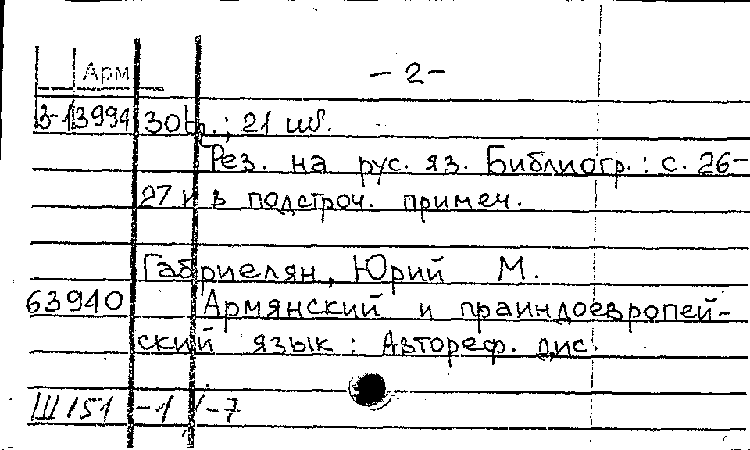 Арм – 2 –
3-13994 30 էջ.; 21 սմ.
Рез. на рус. яз. Библиогр.: с. 26–
27 и в подстроч. примеч.
Габриелян, Юрий М.
63940 Армянский и праиндоевропей-
ский язык: Автореф. дис.
Ш151 -1 -7